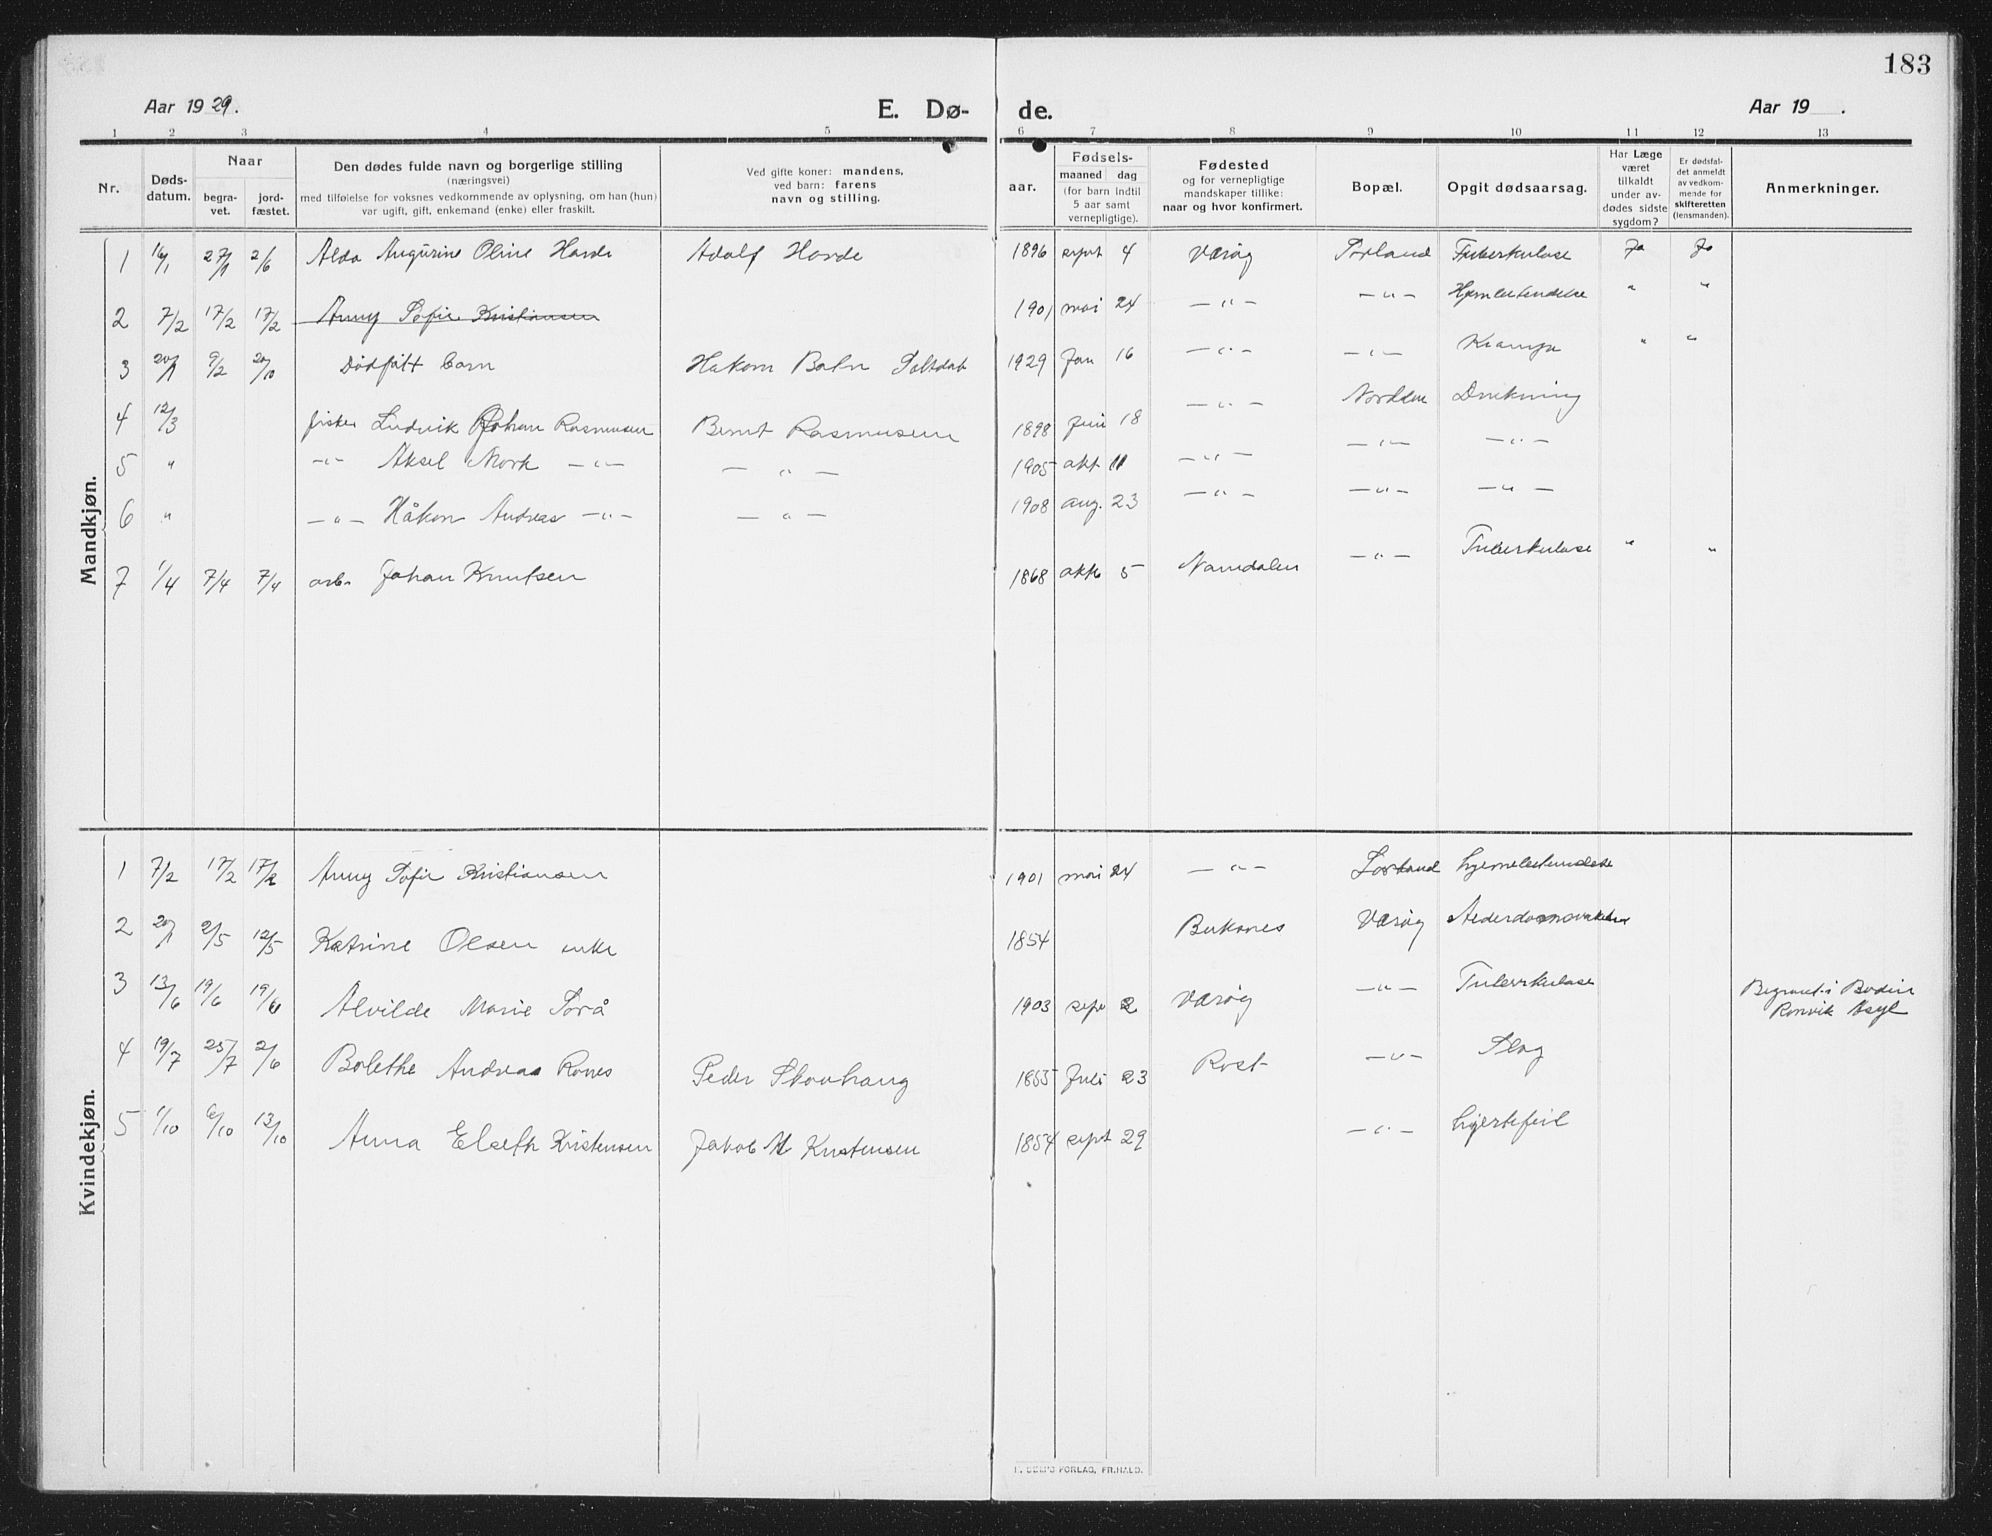 183
Aar 1929.
E. Dø-
de.
Aar 19 .
1 2 3 4 5 6 7 8 9 10 11 12 13
Nr.
Døds-
datum.
Naar
begra-
vet.
jord-
fæstet.
Den dødes fulde navn og borgerlige stilling
(næringsvei)
med tilføielse for voksnes vedkommende av oplysning, om han (hun)
var ugift, gift, enkemand (enke) eller fraskilt.
Ved gifte koner: mandens,
ved barn: farens
navn og stilling.
Fødsels-
aar.
maaned dag
(for barn indtil
5 aar samt
vernepligtige).
Fødested
og for vernepligtige
mandskaper tillike:
naar og hvor konfirmert.
Bopæl.
Opgit dødsaarsag.
Har Læge
været
tilkaldt
under av-
dødes sidste
sygdom?
Er dødsfal-
det anmeldt
av vedkom-
mende for
skifteretten
(lensmanden).
Anmerkninger.
Mandkjøn.
1 16/1 27/1 2/6 Alda Augürine Oline Harde Adolf Harde 1896 sept 4 Værøy Sørland Tuberkulose Ja Ja
2 7/2 17/2 17/2 Anny Sofie Kristiansen 1901 mai 24 —"— —"— " "
3 20/1 9/2 20/10 Dødfött barn Hakon Bahn 1929 Jan 16 —"— —"— " "
4 12/3 fisker Ludvik Johan Rasmusen Bernt Rasmusen 1898 Juni 18 —"— Nordden Drukning
5 " —"— Aksel Mork —"— —"— 1905 okt 11 —"— —"— —"—
6 " —"— Håkon Andreas —"— —"— 1908 aug. 23 —"— —"— —"—
7 1/4 7/4 7/4 arb. Johan Knutsen 1868 okt 5 Namdalen —"— Tuberkulose " "
Kvindekjøn.
1 7/2 17/2 17/2 Anny Sofie Kristiansen 1901 mai 24 —"— Sørland
2 20/1 2/5 12/5 Katrine Olsen enke 1854 Buksnes Værøy
3 13/6 19/6 19/6 Alvilde Marie Sørå 1903 sept 2 Værøy —"— Tuberkulose Begravet i Bodin
Rønvik Asyl
4 19/7 25/7 2/6 Bolethe Andrea Rønes Peder 1855 Juli 23 Røst —"— Slag
5 1/10 6/10 13/10 Anna Elseth Kristensen Jakob M Kristensen 1854 sept 29 —"— hjertefeil